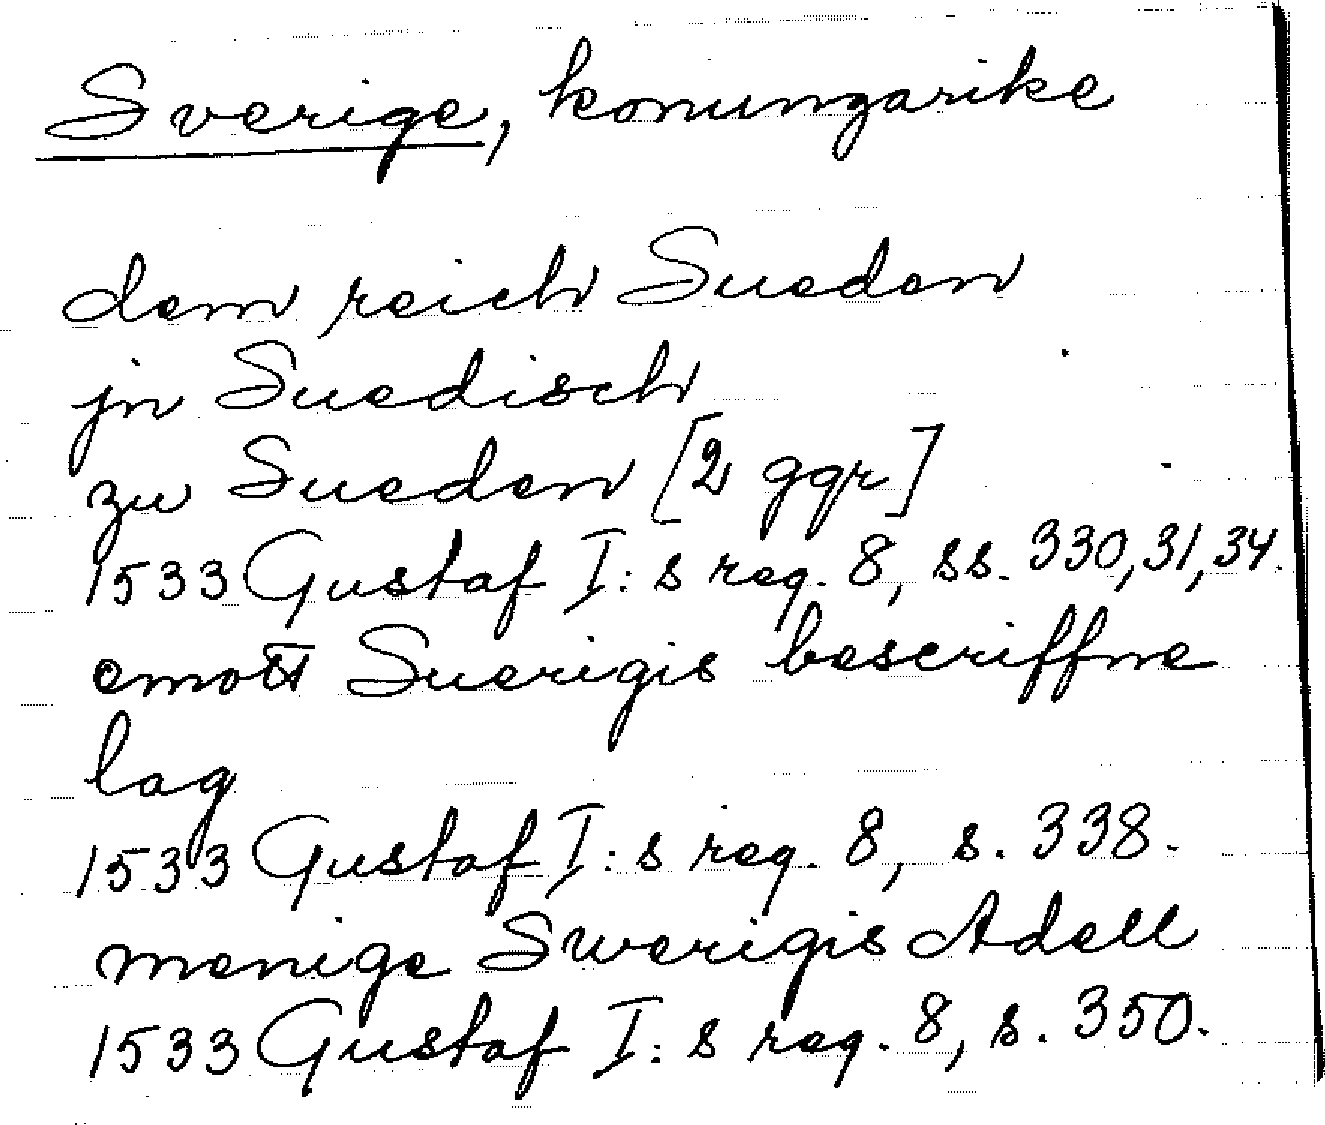 Sverige, konungarike
dem reich Sueden
jn Suedisch
zu Sueden [2 ggr]
1533 Gustaf I:s reg. 8, ss. 330,31,34.
emott Suerigis bescriffne
lag
1533 Gustaf I:s reg. 8, s. 338.
menige Swerigis Adell
1533 Gustaf I:s reg. 8, s. 350.